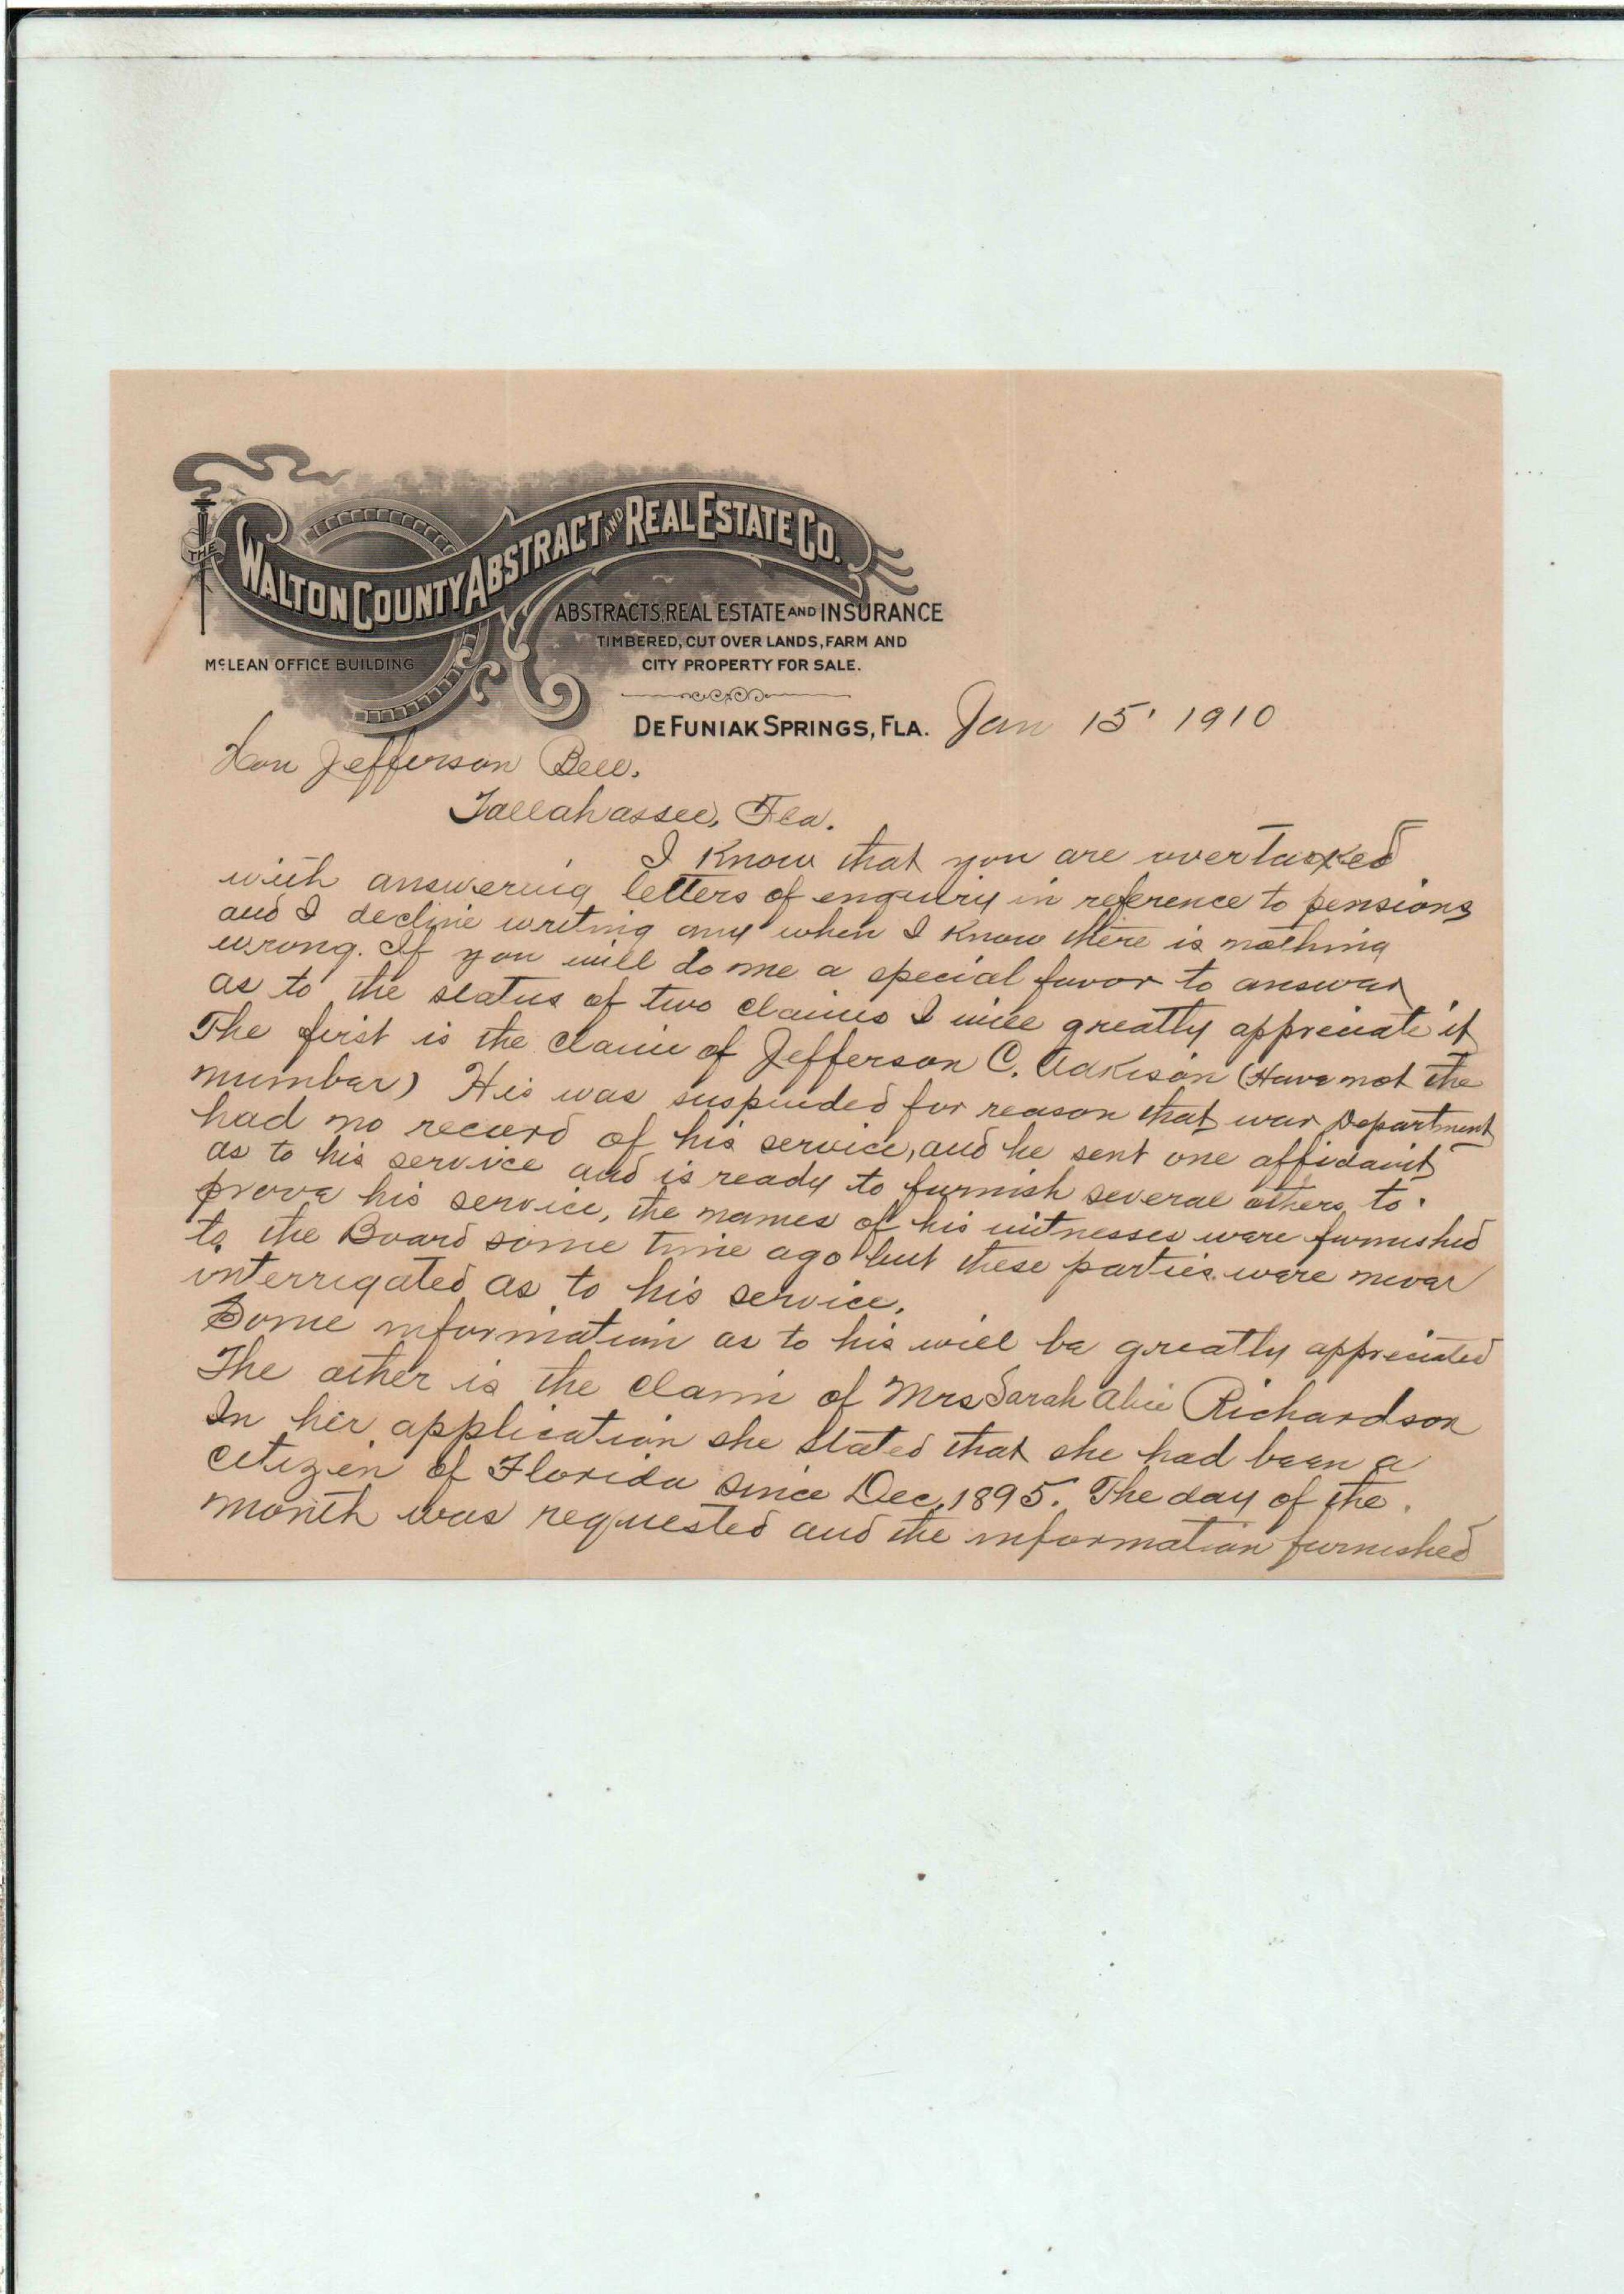 THE WALTON COUNTY ABSTRACT AND REAL ESTATE CO.
ABSTRACTS, REAL ESTATE AND INSURANCE
TIMBERED, CUT OVER LANDS, FARM AND
McLEAN OFFICE BUILDING
CITY PROPERTY FOR SALE.
DEFUNIAK SPRINGS, FLA. Jan 15' 1910
Hon Jefferson Bell.
Tallahassee, Fla.
I know that you are overtasked
with answering letters of enquiry in reference to pensions
and I decline writing any when I know there is nothing
wrong. If you will do me a special favor to answer
as to the status of two claims I will greatly appreciate it
The first is the claim of Jefferson C. Adkison (Have not the
number) His was suspended for reason that war Department
had no record of his service, and he sent one affidavit
as to his service and is ready to furnish several others to
prove his service, the names of his witnesses were furnished
to the Board some time ago but these parties were never
interrigated as to his service.
Some information as to his will be greatly appreciated
The other is the claim of Mrs Sarah Alice Richardson
In her application she stated that she had been a
citizen of Florida since Dec, 1895. The day of the
month was requested and the information furnished